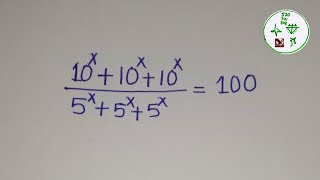 10^x + 10^x + 10^x
5^x + 5^x + 5^x = 100